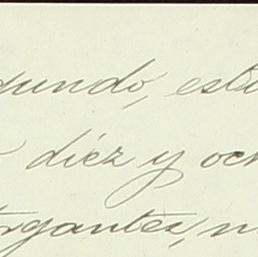 gundo, esta
diez y och
organtes, n